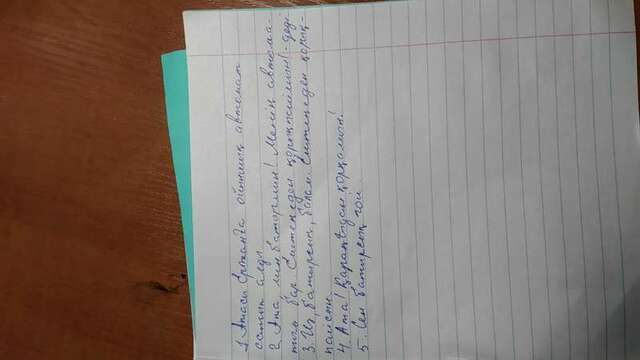 1. Атасы Ержанға ойыншық автомат
сатып алды
2. Ата, мен батырмын! Менің автома-
тым бар. Ештеңеден қорықпаймын! - деді
3. Иә, батырсың, балам. Ештеңеден қорық-
пайсың.
4. Ата! Қараңғыдан қорқамын!
5. Сен батырсың ғой